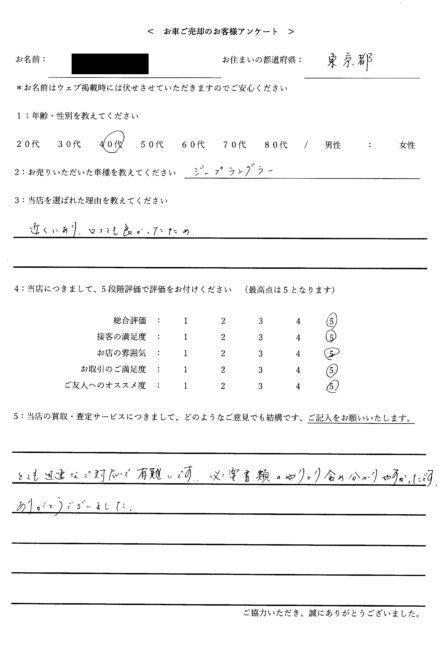 ＜ お車ご売却のお客様アンケート ＞
お名前： お住まいの都道府県： 東京都
＊お名前はウェブ掲載時には伏せさせていただきますのでご安心ください
1：年齢・性別を教えてください
20代 30代 40代 50代 60代 70代 80代 / 男性 ： 女性
2：お売りいただいた車種を教えてください ジープラングラー
3：当店を選ばれた理由を教えてください
近くにあり、口コミも良かったため
4：当店につきまして、5段階評価で評価をお付けください （最高点は5となります）
総合評価 ： 1 2 3 4 5
接客の満足度 ： 1 2 3 4 5
お店の雰囲気 ： 1 2 3 4 5
お取引のご満足度 ： 1 2 3 4 5
ご友人へのオススメ度 ： 1 2 3 4 5
5：当店の買取・査定サービスにつきまして、どのようなご意見でも結構です、ご記入をお願いいたします。
とても迅速なご対応で有難いです。必要書類のやりとり含め分かりやすかったです
ありがとうございました。
ご協力いただき、誠にありがとうございました。